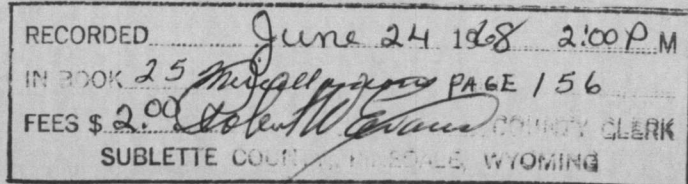 RECORDED June 24 1968 2:00 P M
IN BOOK 25 Miscellaneous PAGE 156
FEES $ 2.00 Robert W Evans COUNTY CLERK
SUBLETTE COUNTY, PINEDALE, WYOMING